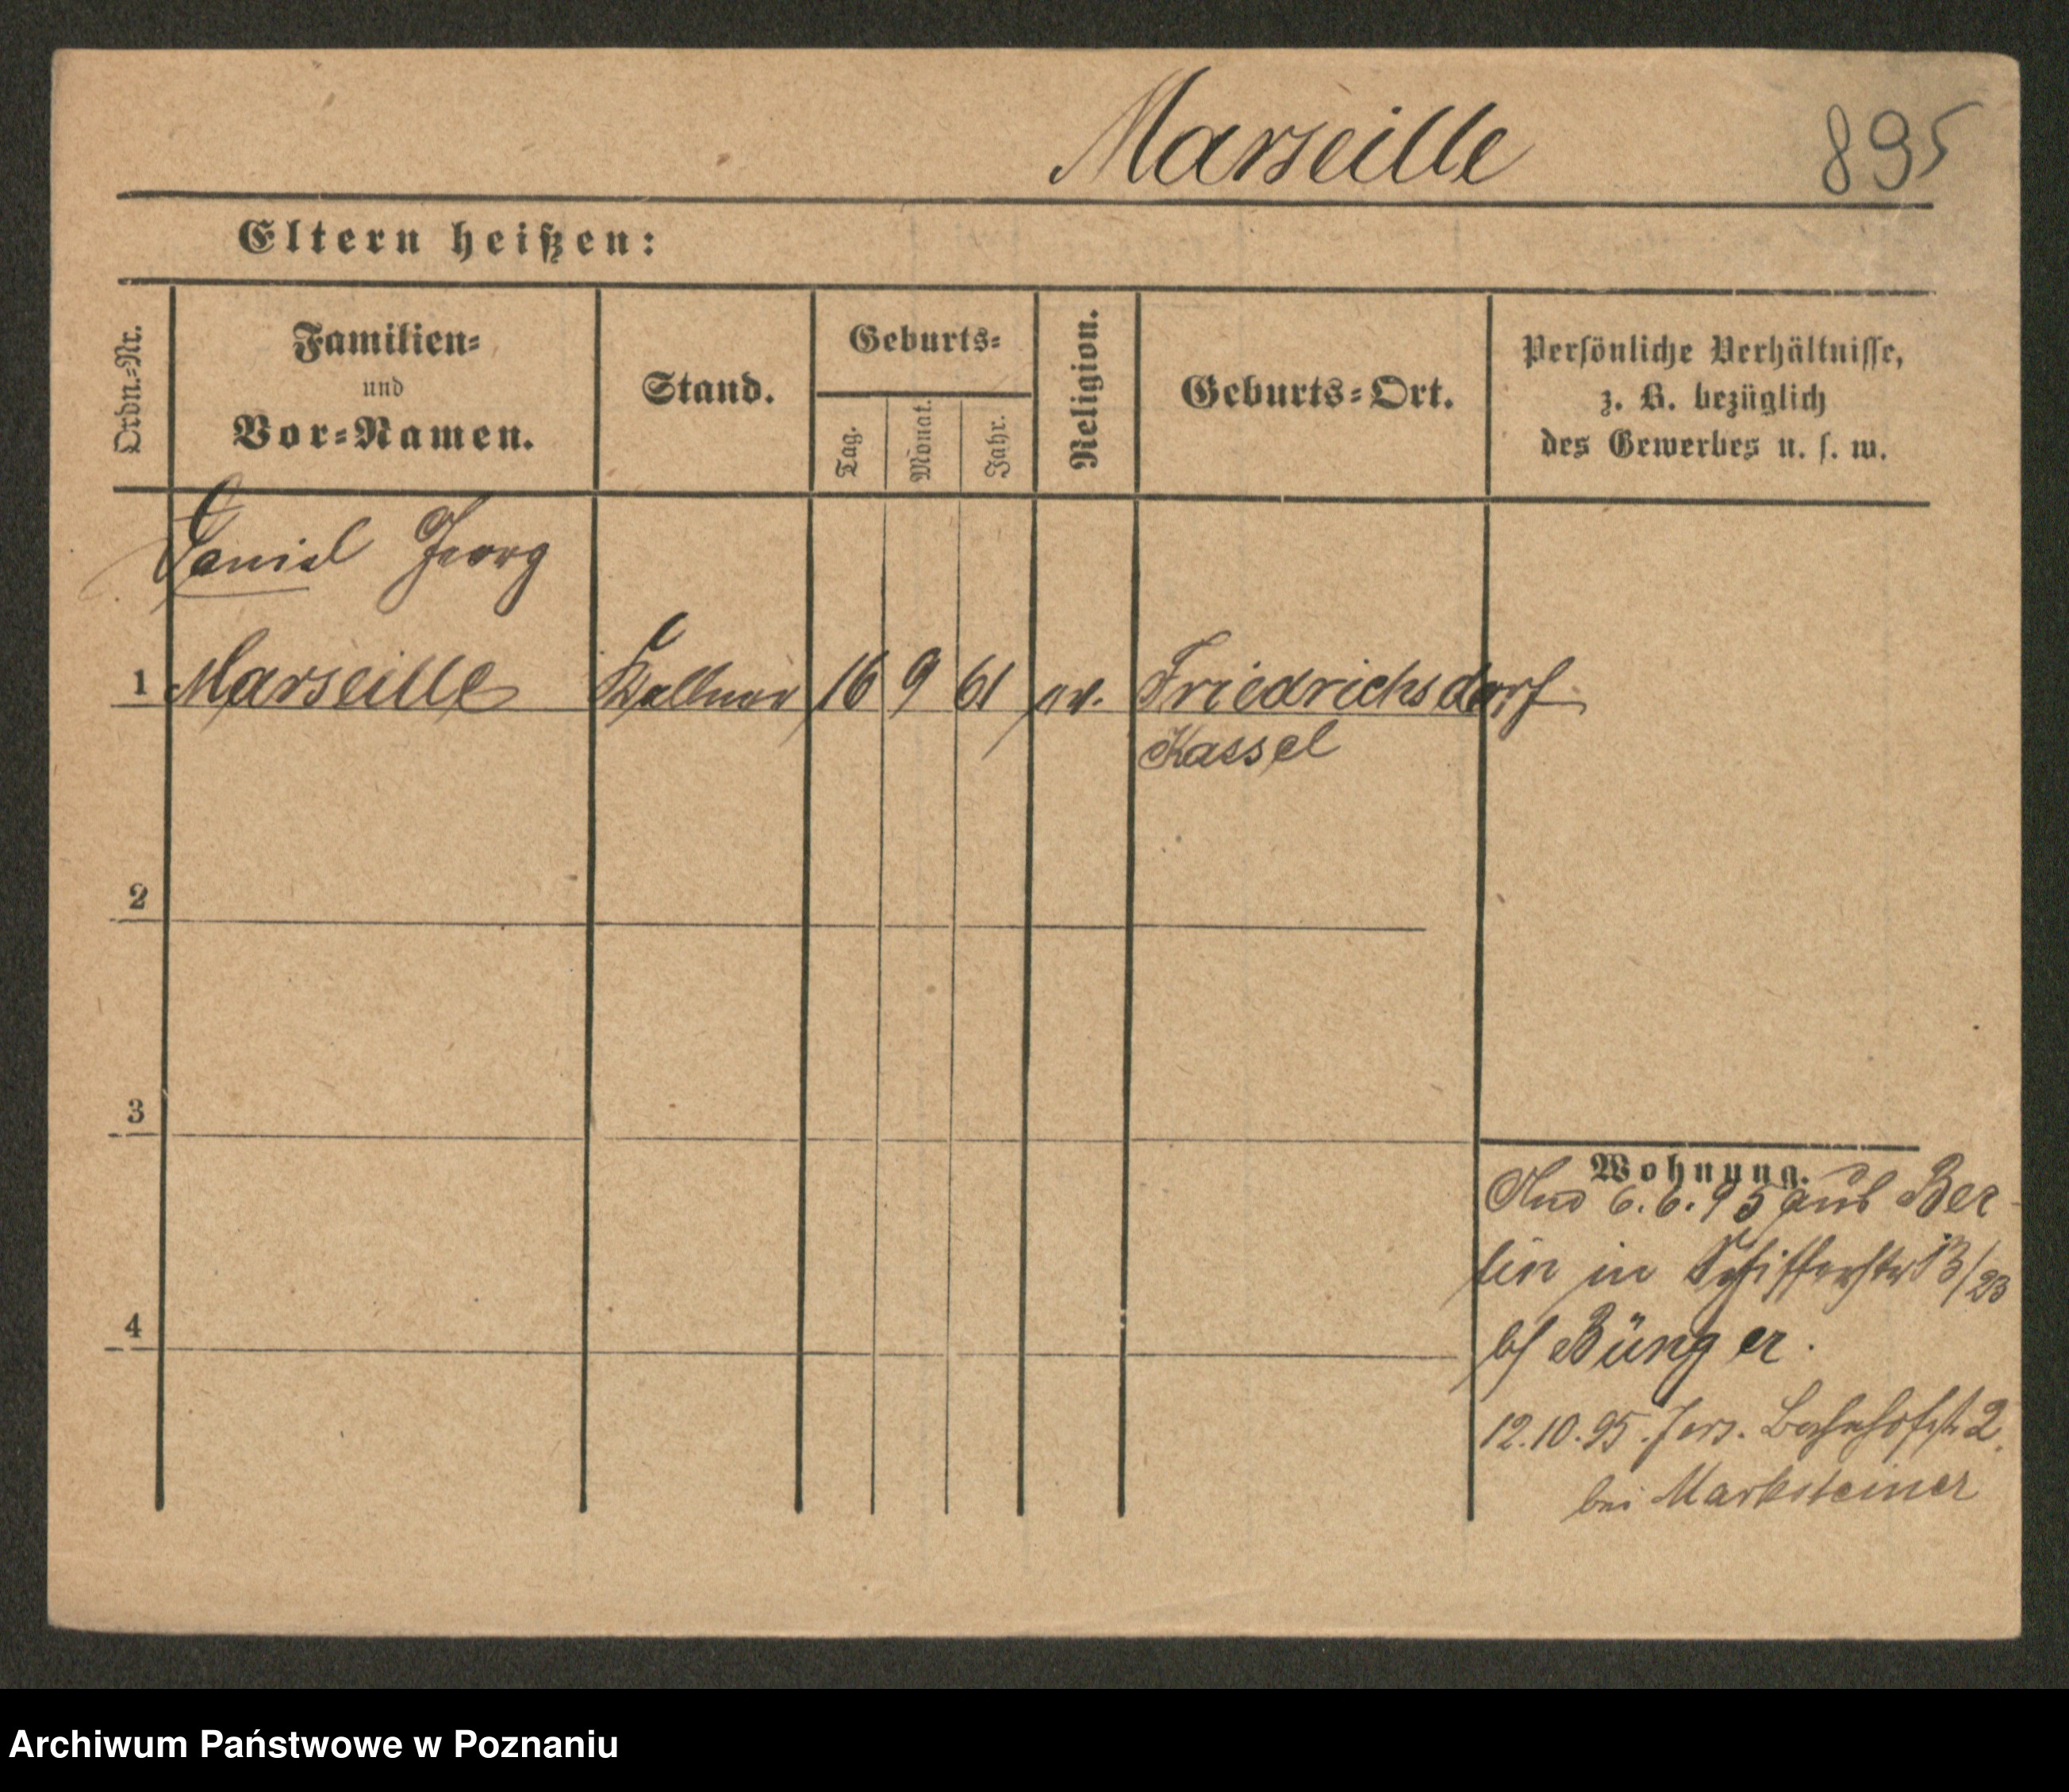 Marseille 895
Eltern heißen:
Ordn.-Nr.
Familien-
und
Vor-Namen.
Stand.
Geburts-
Tag.
Monat.
Jahr.
Religion.
Geburts-Ort.
Persönliche Verhältnisse,
z. B. bezüglich
des Gewerbes u. s. w.
Daniel Georg
1 Marseille Kellner 16 9 61 ev. Friedrichsdorf
Kassel
2
3
4
Wohnung.
6.6.95 aus Ber-
lin in Schifferstr 13/23
b/ Bünger.
12.10.95. Jers. Bahnhofstr 2.
bei Marksteiner
Archiwum Państwowe w Poznaniu